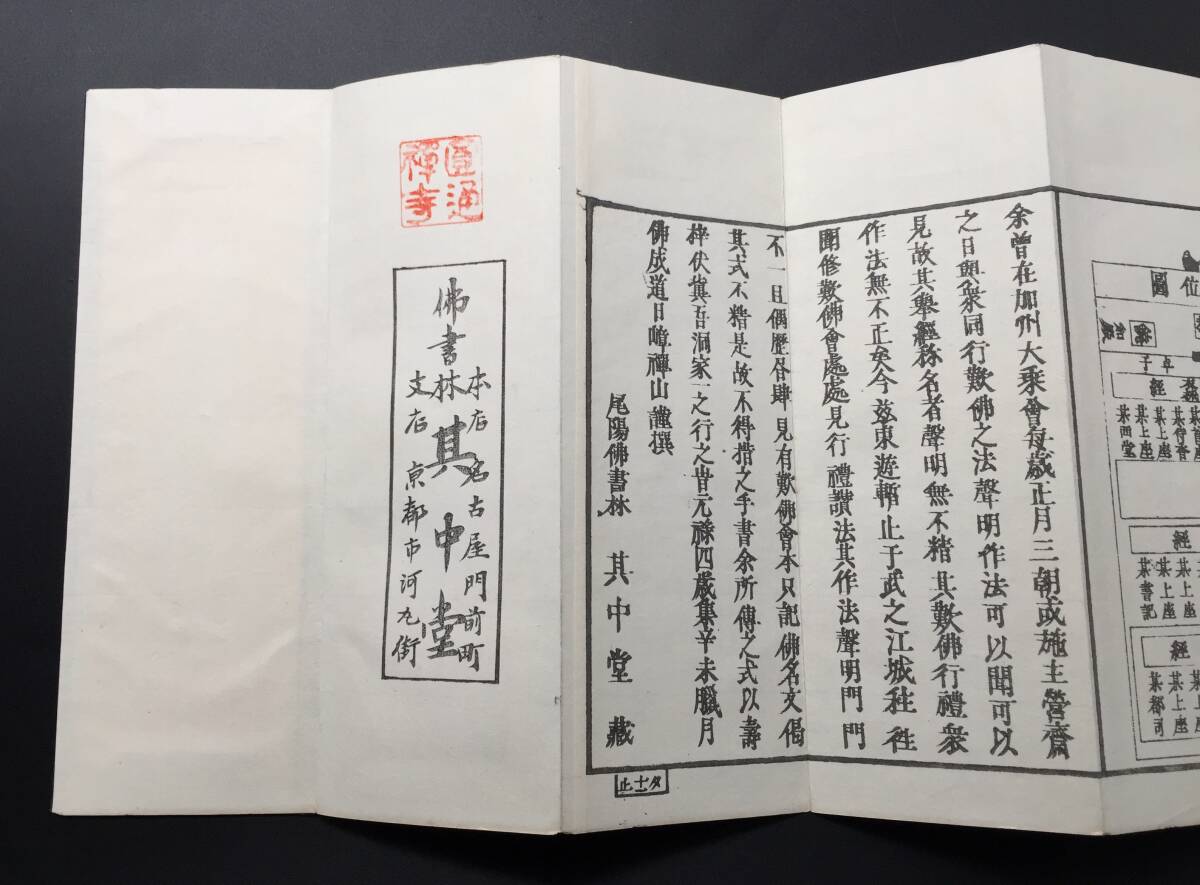 位圖
卓子
經
某西堂
某上座
某上座
經
某書記
某上座
某上座
經
某都司
某上座
某上座
余曾在加州大乘會每歳正月三朝或施主營齋
之日與衆同行歎佛之法聲明作法可以聞可以
見故其舉經称名者聲明無不精其歎佛行禮衆
作法無不正矣今茲東遊暫止于武之江城往徃
開修歎佛會處處見行禮讃法其作法聲明門門
不一且偶歴各肆見有歎佛會本只記佛名文偈
其式不精是故不得揩之手書余所傳之式以壽
梓伏冀吾洞家一之行之旹元祿四歳集辛未臘月
佛成道日嶂禪山謹撰
尾陽佛書林 其中堂藏
夕十一止
圓通禪寺
本店 名古屋門前町
佛書林 其中堂
支店 京都市河九街